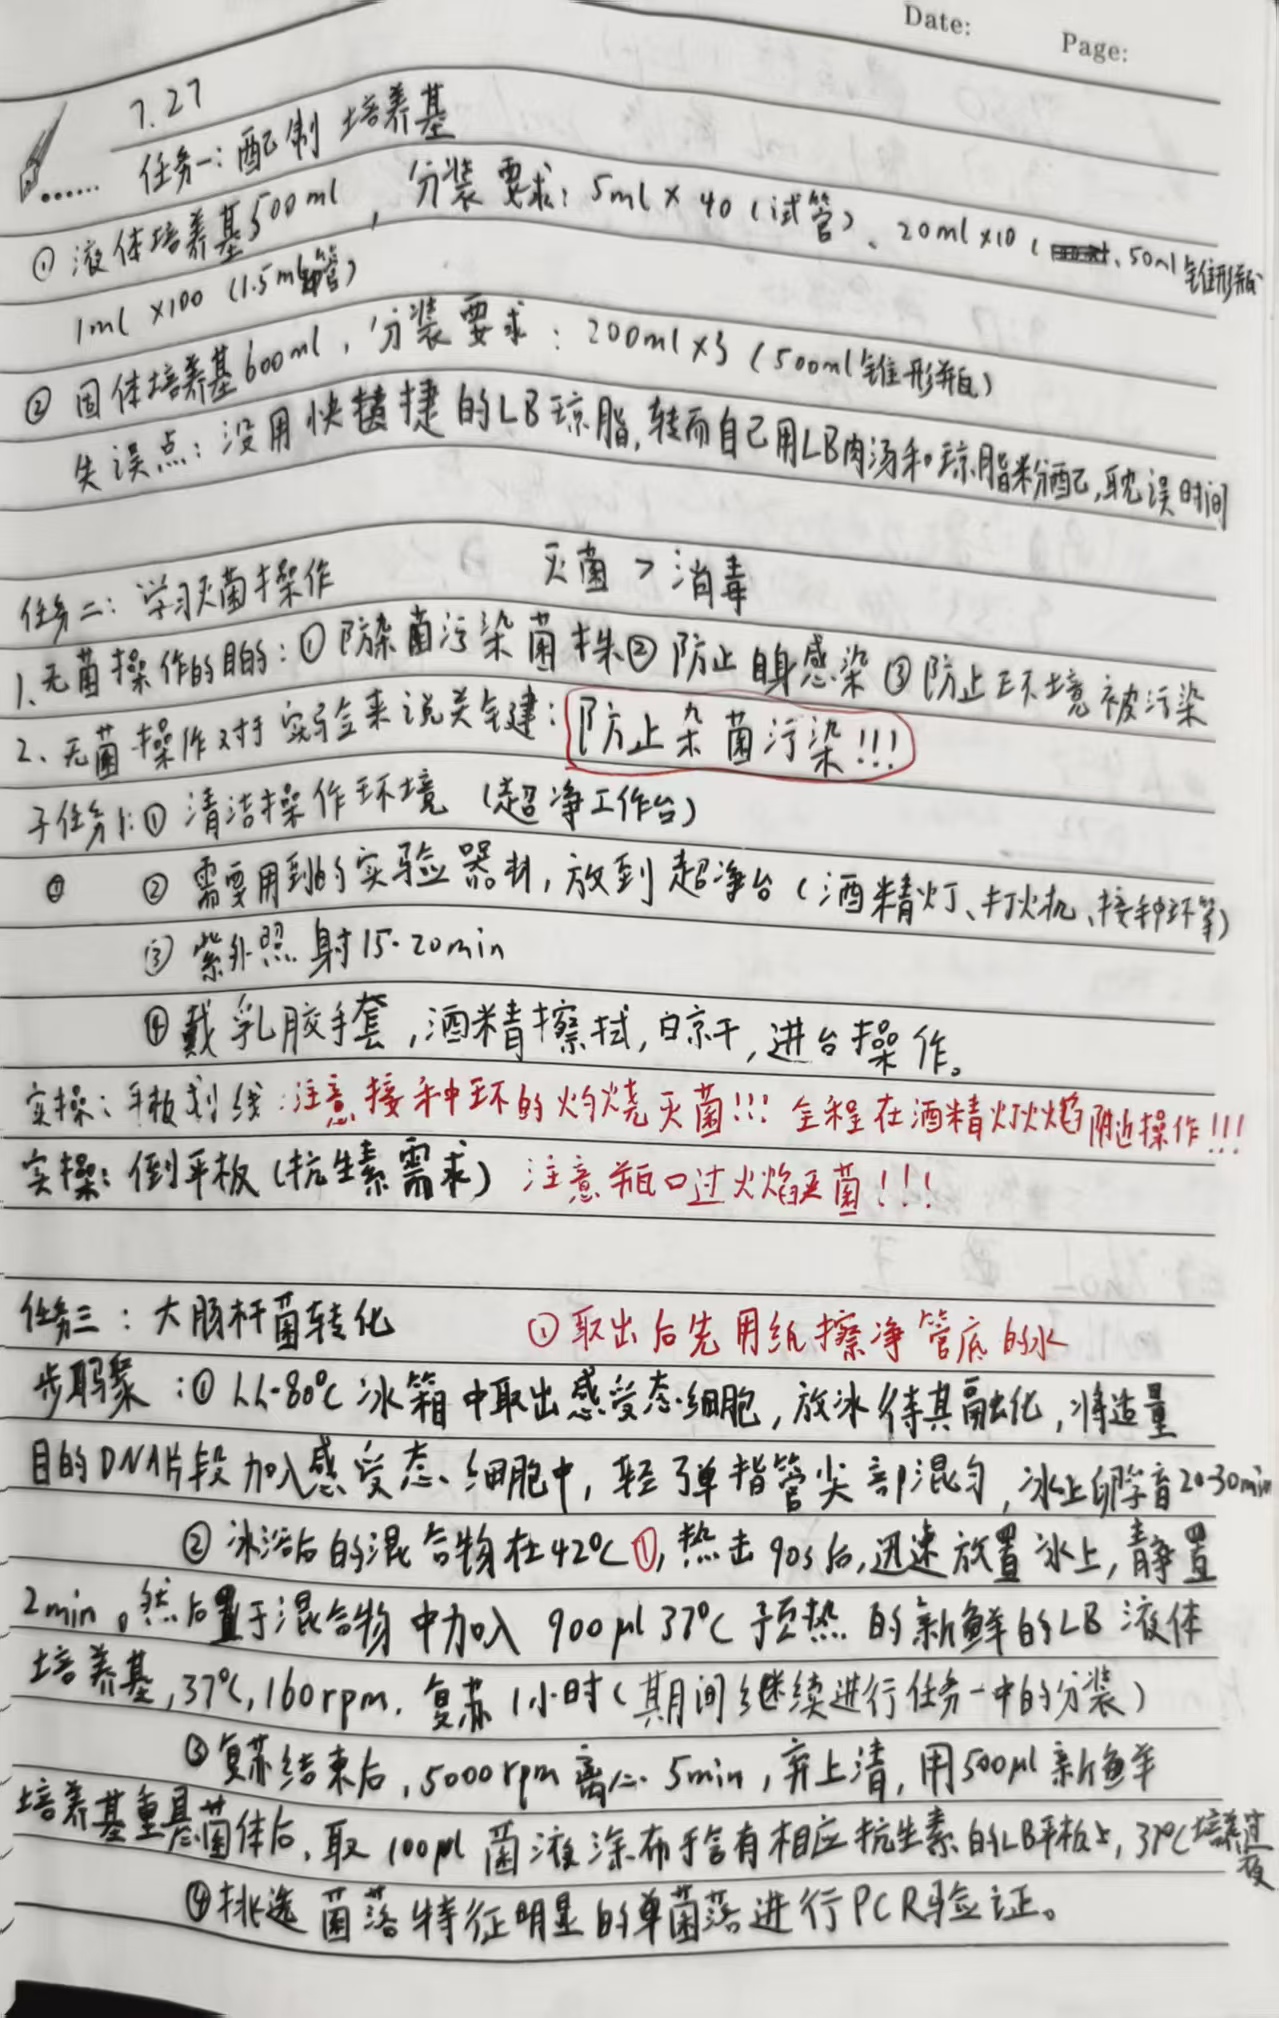 Date:
Page:
7.27
任务一：配制 培养基
① 液体培养基500ml，分装要求：5ml×40（试管）、20ml×10（、50ml锥形瓶
1ml ×100（1.5ml管）
② 固体培养基600ml，分装要求：200ml×3（500ml锥形瓶）
失误点：没用快捷的LB琼脂，转而自己用LB肉汤和琼脂粉配，耽误时间
任务二：学习灭菌操作 灭菌 > 消毒
1、无菌操作的目的：①防杂菌污染菌株②防止自身感染③防止环境被污染
2、无菌操作对于实验来说关键：防止杂菌污染!!!
子任务1:① 清洁操作环境（超净工作台）
② 需要用到的实验器材，放到超净台（酒精灯、打火机、接种环等）
③ 紫外照射15-20min
④ 戴乳胶手套，酒精擦拭，自晾干，进台操作。
实操：平板划线：注意接种环的灼烧灭菌!!! 全程在酒精灯火焰附近操作!!!
实操：倒平板（抗生素需求）注意瓶口过火焰灭菌!!!
任务三：大肠杆菌转化 ①取出后先用纸擦净管底的水
步骤：①从-80℃冰箱中取出感受态细胞，放冰待其融化，将适量
目的DNA片段加入感受态细胞中，轻弹指管尖部混匀，冰上孵育20-30min
② 冰浴后的混合物在42℃①，热击90s后，迅速放置冰上，静置
2min。然后置于混合物中加入900μl 37℃预热的新鲜的LB液体
培养基，37℃，160rpm.复苏1小时（期间继续进行任务一中的分装）
③复苏结束后，5000rpm离心5min，弃上清，用500μl新鲜
培养基重悬菌体后，取100μl菌液涂布于含有相应抗生素的LB平板上，37℃培养过夜
④挑选菌落特征明显的单菌落进行PCR验证。